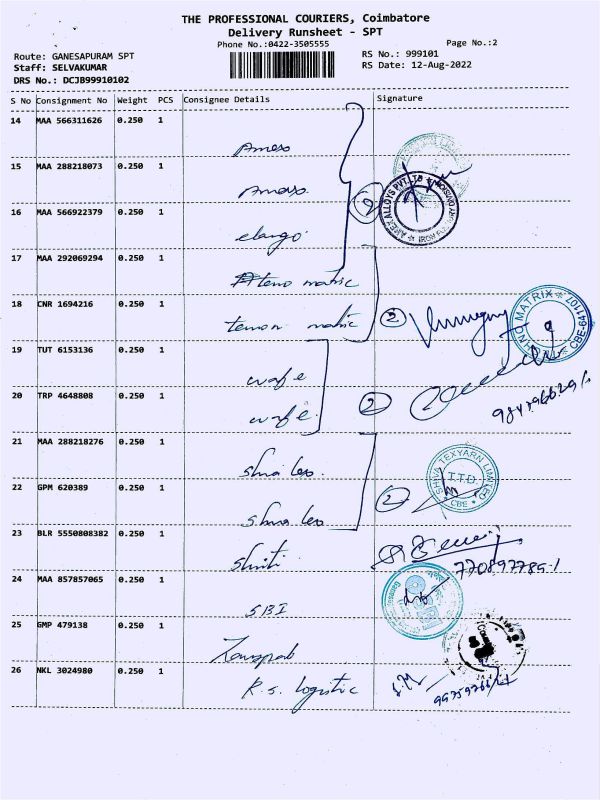 THE PROFESSIONAL COURIERS, Coimbatore
Delivery Runsheet - SPT
Phone No.:0422-3505555
Page No.:2
Route: GANESAPURAM SPT
RS No.: 999101
Staff: SELVAKUMAR
RS Date: 12-Aug-2022
DRS No.: DCJB99910102
S No Consignment No Weight PCS Consignee Details Signature
14 MAA 566311626 0.250 1
15 MAA 288218073 0.250 1
16 MAA 566922379 0.250 1 elango
17 MAA 292069294 0.250 1 matric
18 CNR 1694216 0.250 1 matric
2
TECHNO MATRIX CBE-641107
19 TUT 6153136 0.250 1 wafe
20 TRP 4648808 0.250 1 wafe
2
21 MAA 288218276 0.250 1
22 GPM 620389 0.250 1
2
SHIVA TEXYARN LIMITED
T.T.D.
CBE
23 BLR 5550808382 0.250 1
24 MAA 857857065 0.250 1 SBI
25 GMP 479138 0.250 1
26 NKL 3024980 0.250 1 K.S. logistic